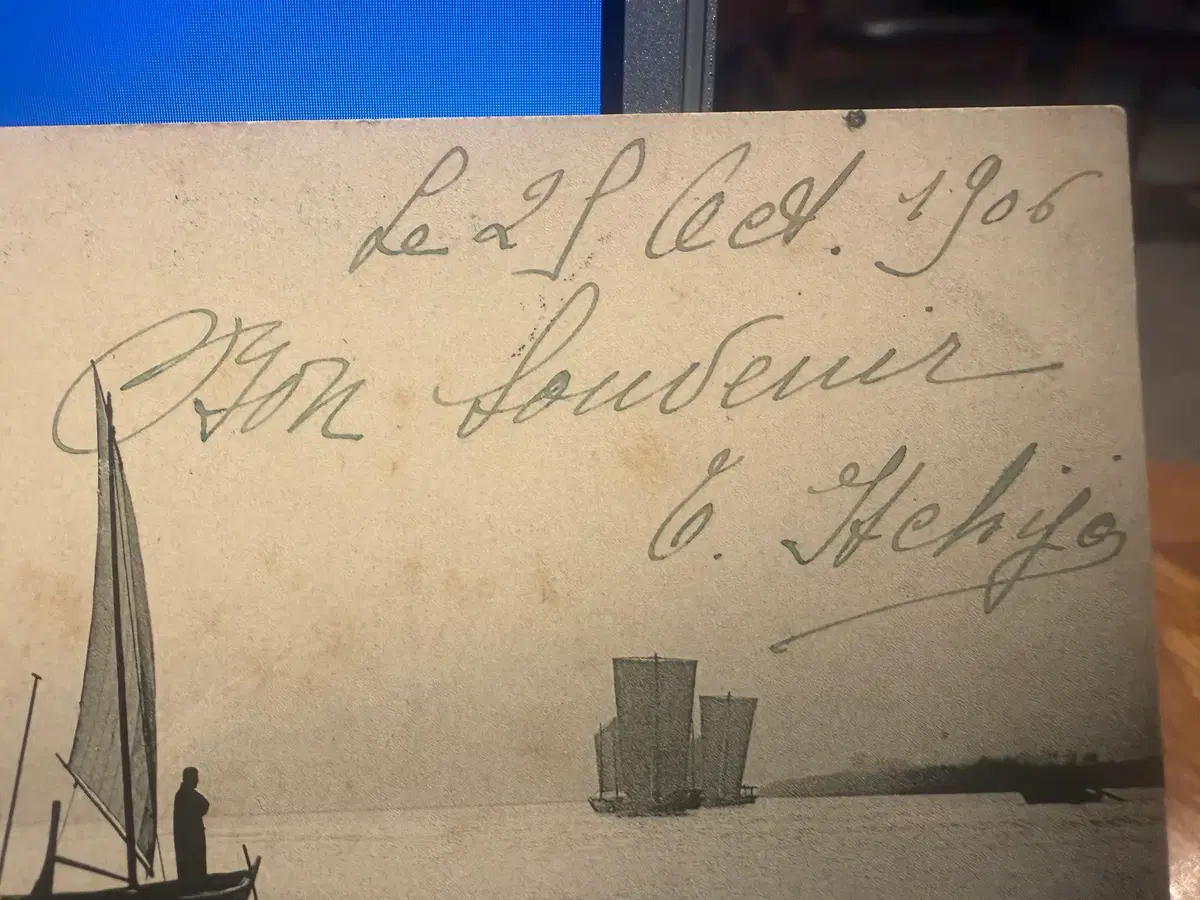 Le 25 Oct. 1906
Bon Souvenir
E. Itchijo